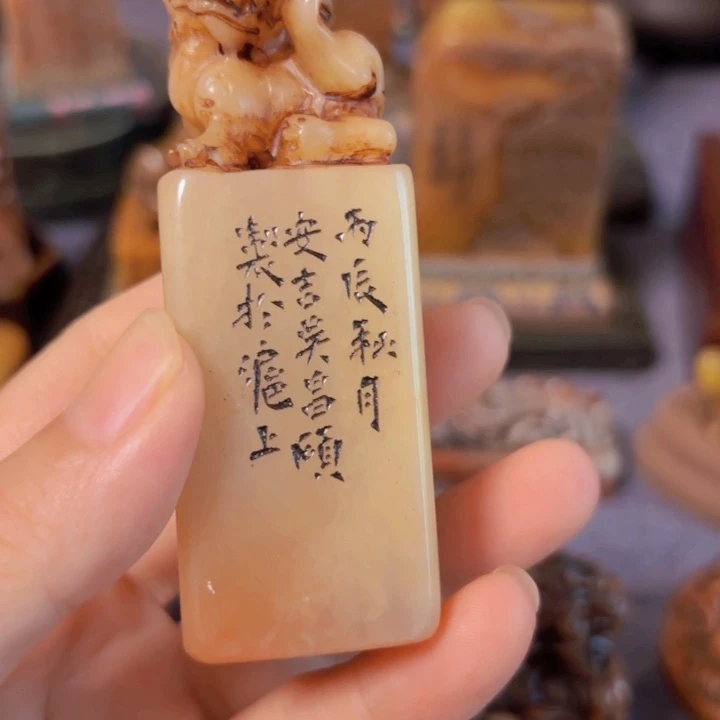 丙辰秋月
安吉吴昌碩
製於滬上